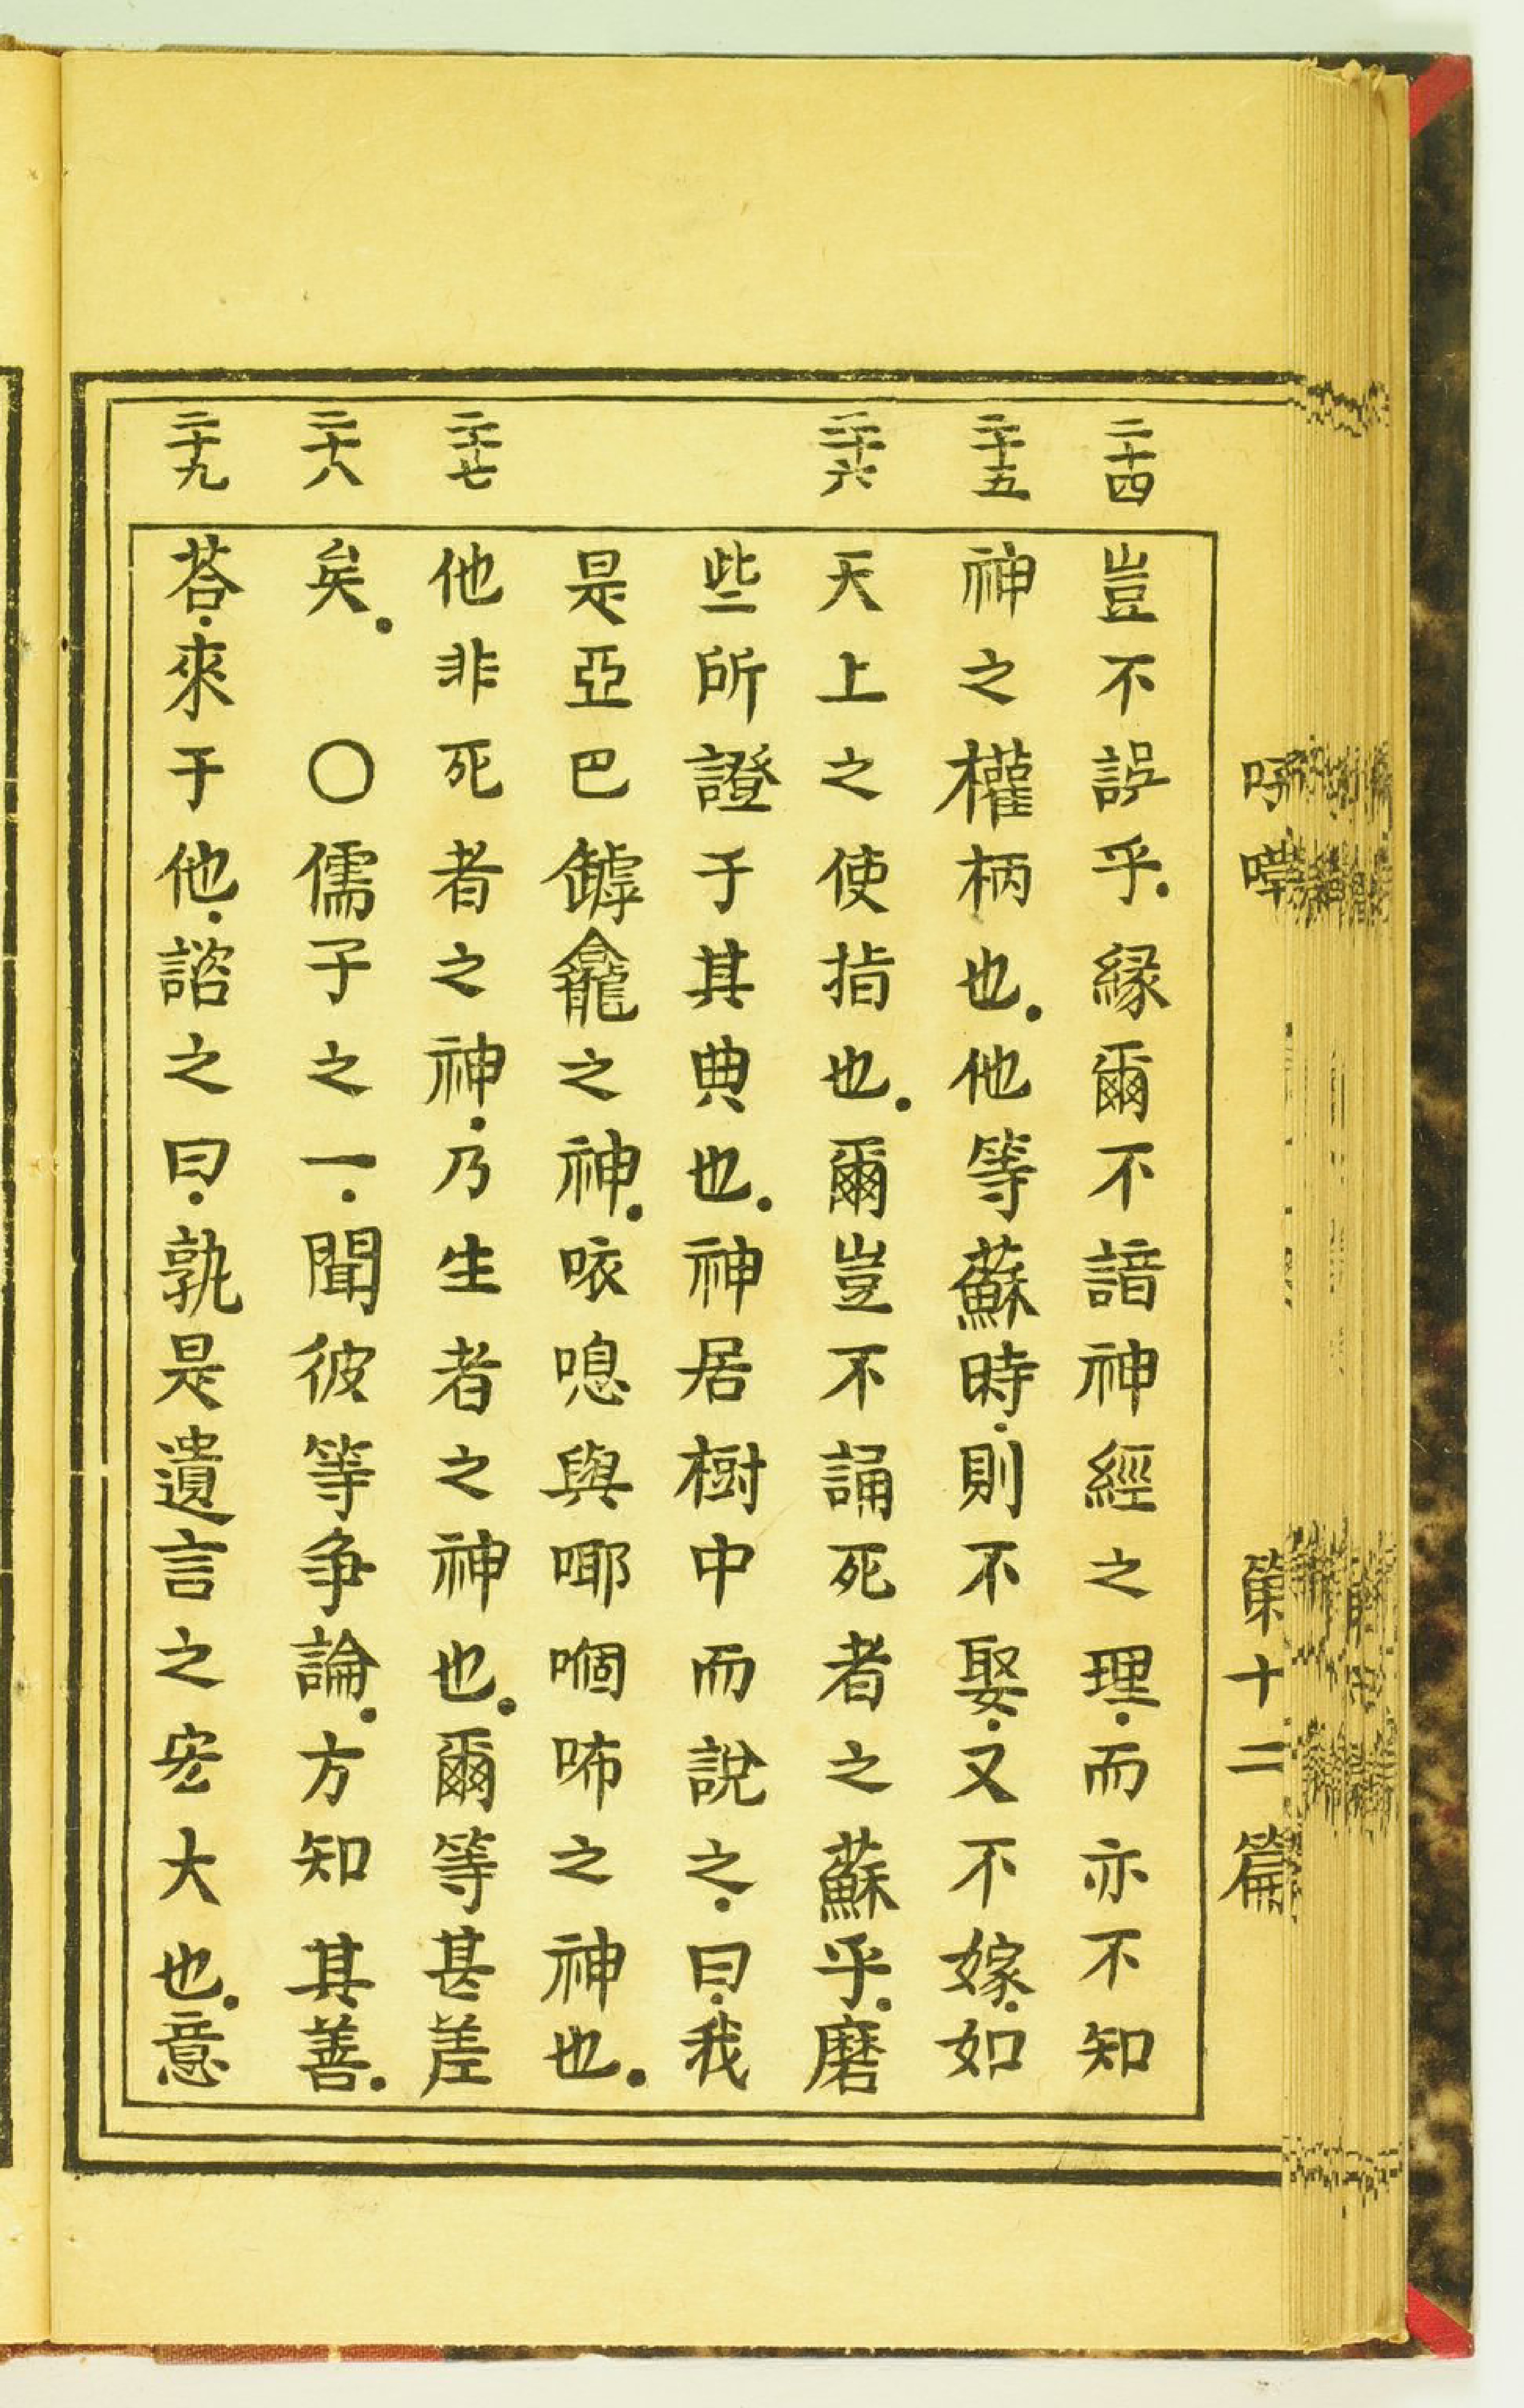 第十二篇
二十四
豈不誤乎．緣爾不諳神經之理．而亦不知
二十五
神之權柄也．他等蘇時．則不娶．又不嫁．如
二十六
天上之使指也．爾豈不誦死者之蘇乎．磨
些所證于其典也．神居樹中而說之．曰．我
是亞巴罅龕之神．咴𠺒與㖿㗻㕷之神也．
二十七
他非死者之神．乃生者之神也．爾等甚差
二十八
矣．〇儒子之一．聞彼等争論．方知其善．
二十九
荅．來于他．諮之曰．孰是遺言之宏大也．意